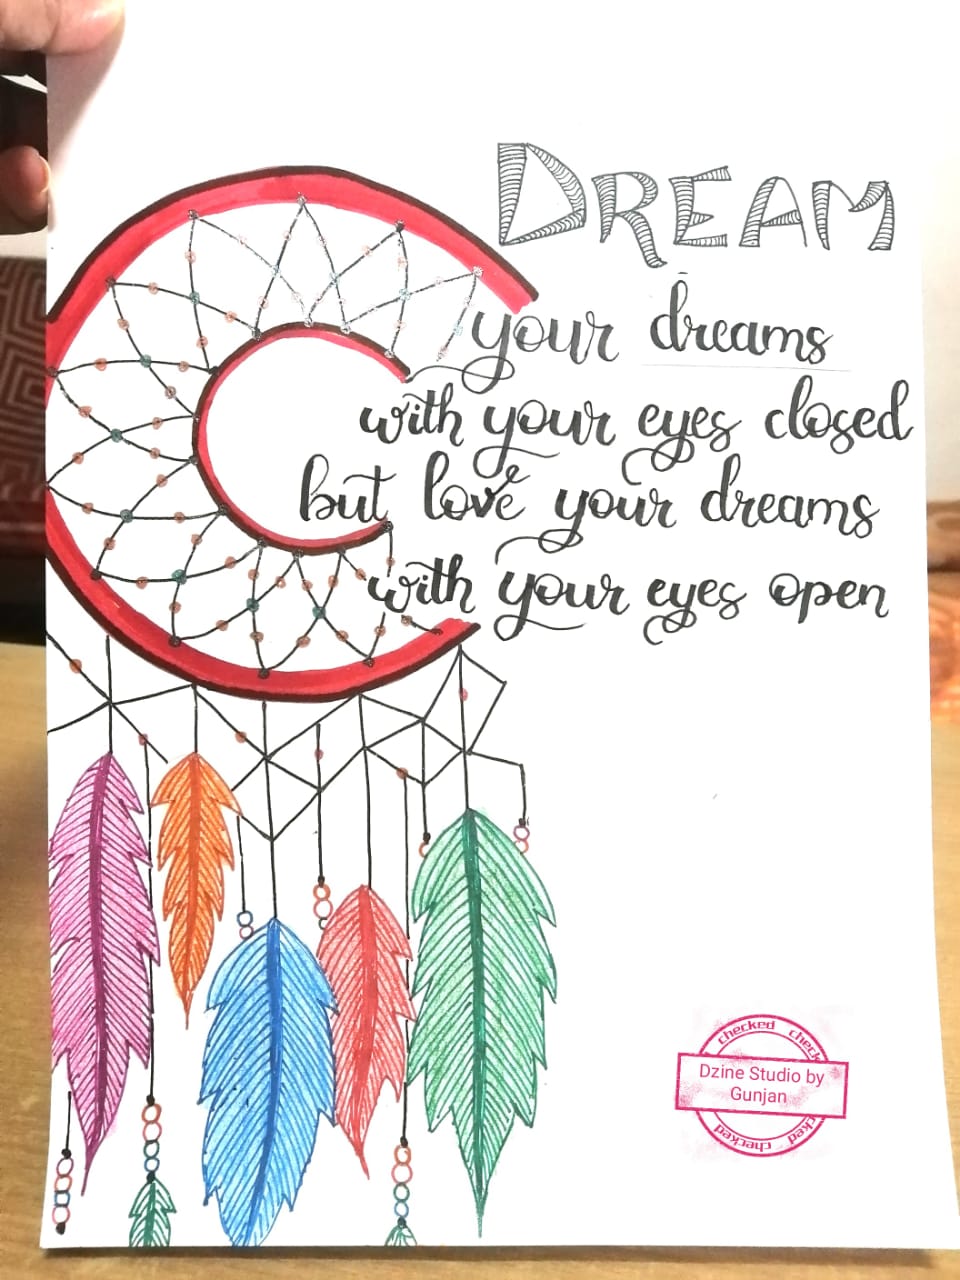 DREAM
your dreams
with your eyes closed
but love your dreams
with your eyes open
checked check
Dzine Studio by
Gunjan
checked checked